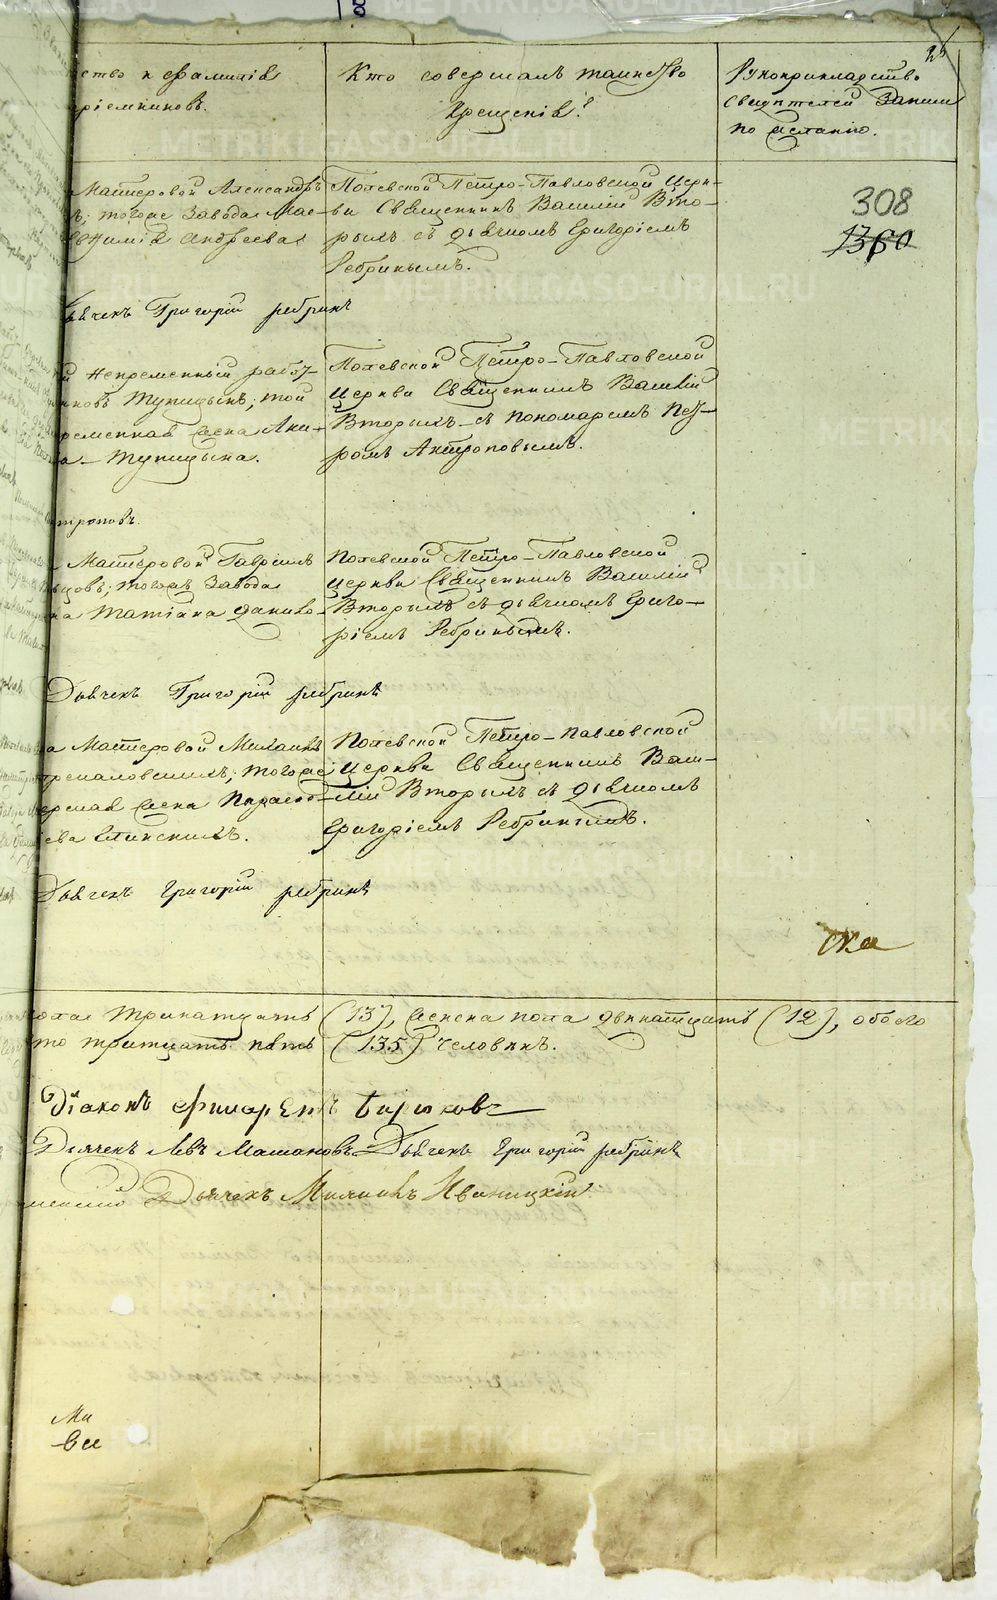 ство и фамилія
пріемниковъ.
Кто совершалъ таинство
Крещенія?
Рукоприкладство
свидѣтелей Записи
по желанію.
25
308
1360
Мастеровой Александръ
тогоже Завода Мас-
Евфимія Андреева
Полевской Петро-Павловской Церк-
ви Священникъ Василій Вто-
рыхъ съ дьячкомъ Григоріемъ
Ребринымъ.
Дьячекъ Григорій ребринъ
й непременный работ-
никовъ Тупицынъ; той
ременная жена Аки-
на Тупицына.
Полевской Петро-Павловской
Церкви Священникъ Василій
Вторыхъ съ пономаремъ Пет-
ромъ Антроповымъ.
нтроповъ.
Мастеровой Гавріилъ
цовъ; тогожъ Завода
на Татіана Данило-
Полевской Петро-Павловской
Церкви Священникъ Василій
Вторыхъ съ дьячкомъ Григо-
ріемъ Ребринымъ.
Дьячекъ Григорій ребринъ
а Мастеровой Михаилъ
тогоже
жена Параско-
ева Елинскихъ.
Полевской Петро-Павловской
Церкви Священникъ Васи-
лій Вторыхъ съ дьячкомъ
Григоріемъ Ребринымъ.
Дьячекъ Григорій ребринъ
пола тринатцать (13), женска пола двенатцать (12), обоего
сто тритцать пять (135) человѣкъ.
Діаконъ Филаретъ Бирюковъ
Дьячекъ Левъ Машановъ Дьячекъ Григорій ребринъ
Дьячекъ Михаилъ Иваницкій
METRIKI.GASO-URAL.RU